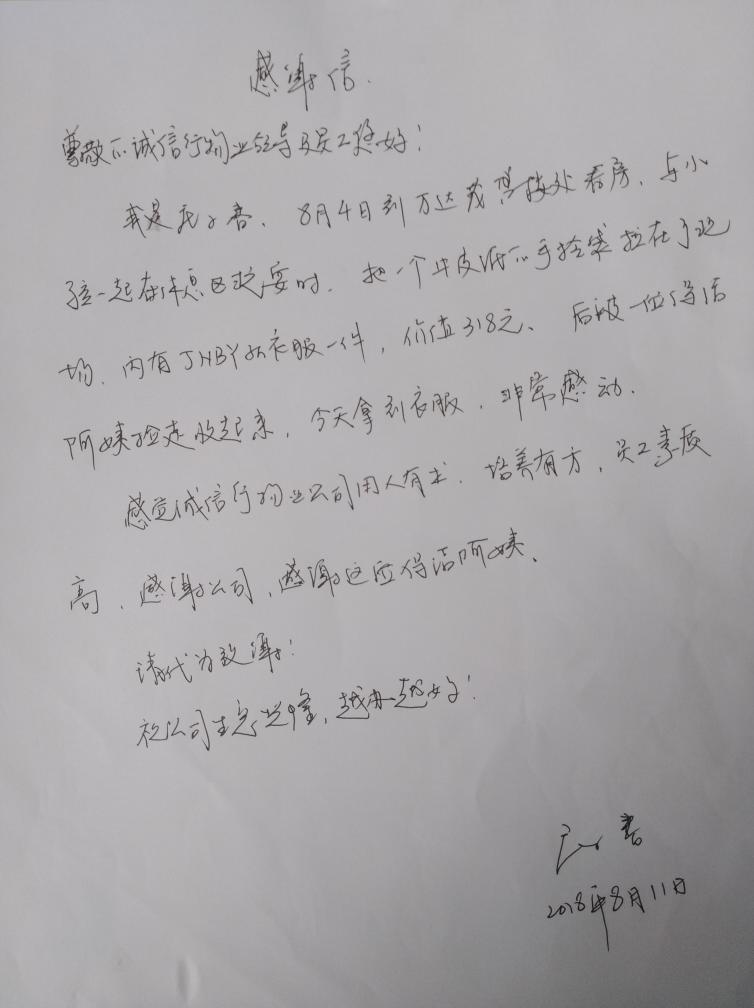 感谢信.
尊敬的诚信行物业领导及员工您好!
我是 8月4日到万达茂 接处看房、与小
孩一起在休息区玩耍时. 把一个牛皮纸的手拎袋拉在了现
场、内有JNBY的衣服一件, 价值318元、后被一位保洁
阿姨捡走收起来, 今天拿到衣服, 非常感动.
感觉诚信行物业公司用人有术. 培养有方, 员工素质
高、感谢公司, 感谢这位保洁阿姨、
请代为致谢!
祝公司生意兴隆, 越办越好!
春
2018年8月11日